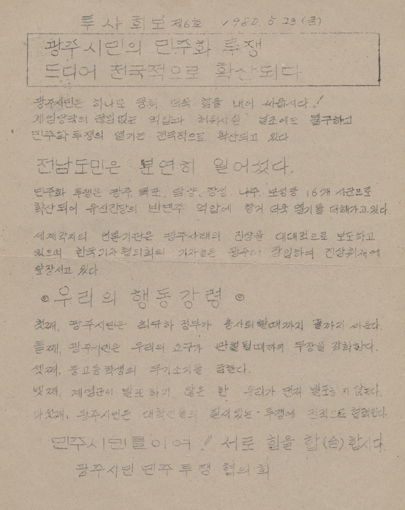 투사회보 제6호 1980. 5. 23 (금)
광주시민의 민주화 투쟁
드디어 전국적으로 확산되다
광주시민은 하나로 뭉쳐 더욱 힘을 내어 싸웁시다!
계엄당국의 끊임없는 억압과 허위사실 보도에도 불구하고
민주화 투쟁의 열기는 전국적으로 확산되고 있다
전남도민은 분연히 일어섰다.
민주화 투쟁은 광주 목포, 담양, 장성 나주 보성등 16개 시군으로
확산되어 유신잔당의 억압에 항거 더욱 열기를 더해가고 있다
세계각국의 언론기관은 광주사태의 진상을 대대적으로 보도하고
있으며 한국기자협의회의 기자들은 광주에 잠입하여 진상취재에
앞장서고 있다
◎ 우리의 행동강령 ◎
첫째, 광주시민은 최규하 정부가 총사퇴할때까지 끝까지 싸운다.
둘째, 광주시민은 우리의 요구가 관철될때까지 무장을 강화한다.
셋째, 중고등학생의 무기소지를 금한다.
넷째, 계엄군이 발포하지 않는 한 우리가 먼저 발포하지 않는다.
다섯째, 광주시민은 대학인들의 질서있는 투쟁에 적극으로 협력한다.
민주시민들이여! 서로 힘을 합(合)합시다.
광주시민 민주투쟁 협의회